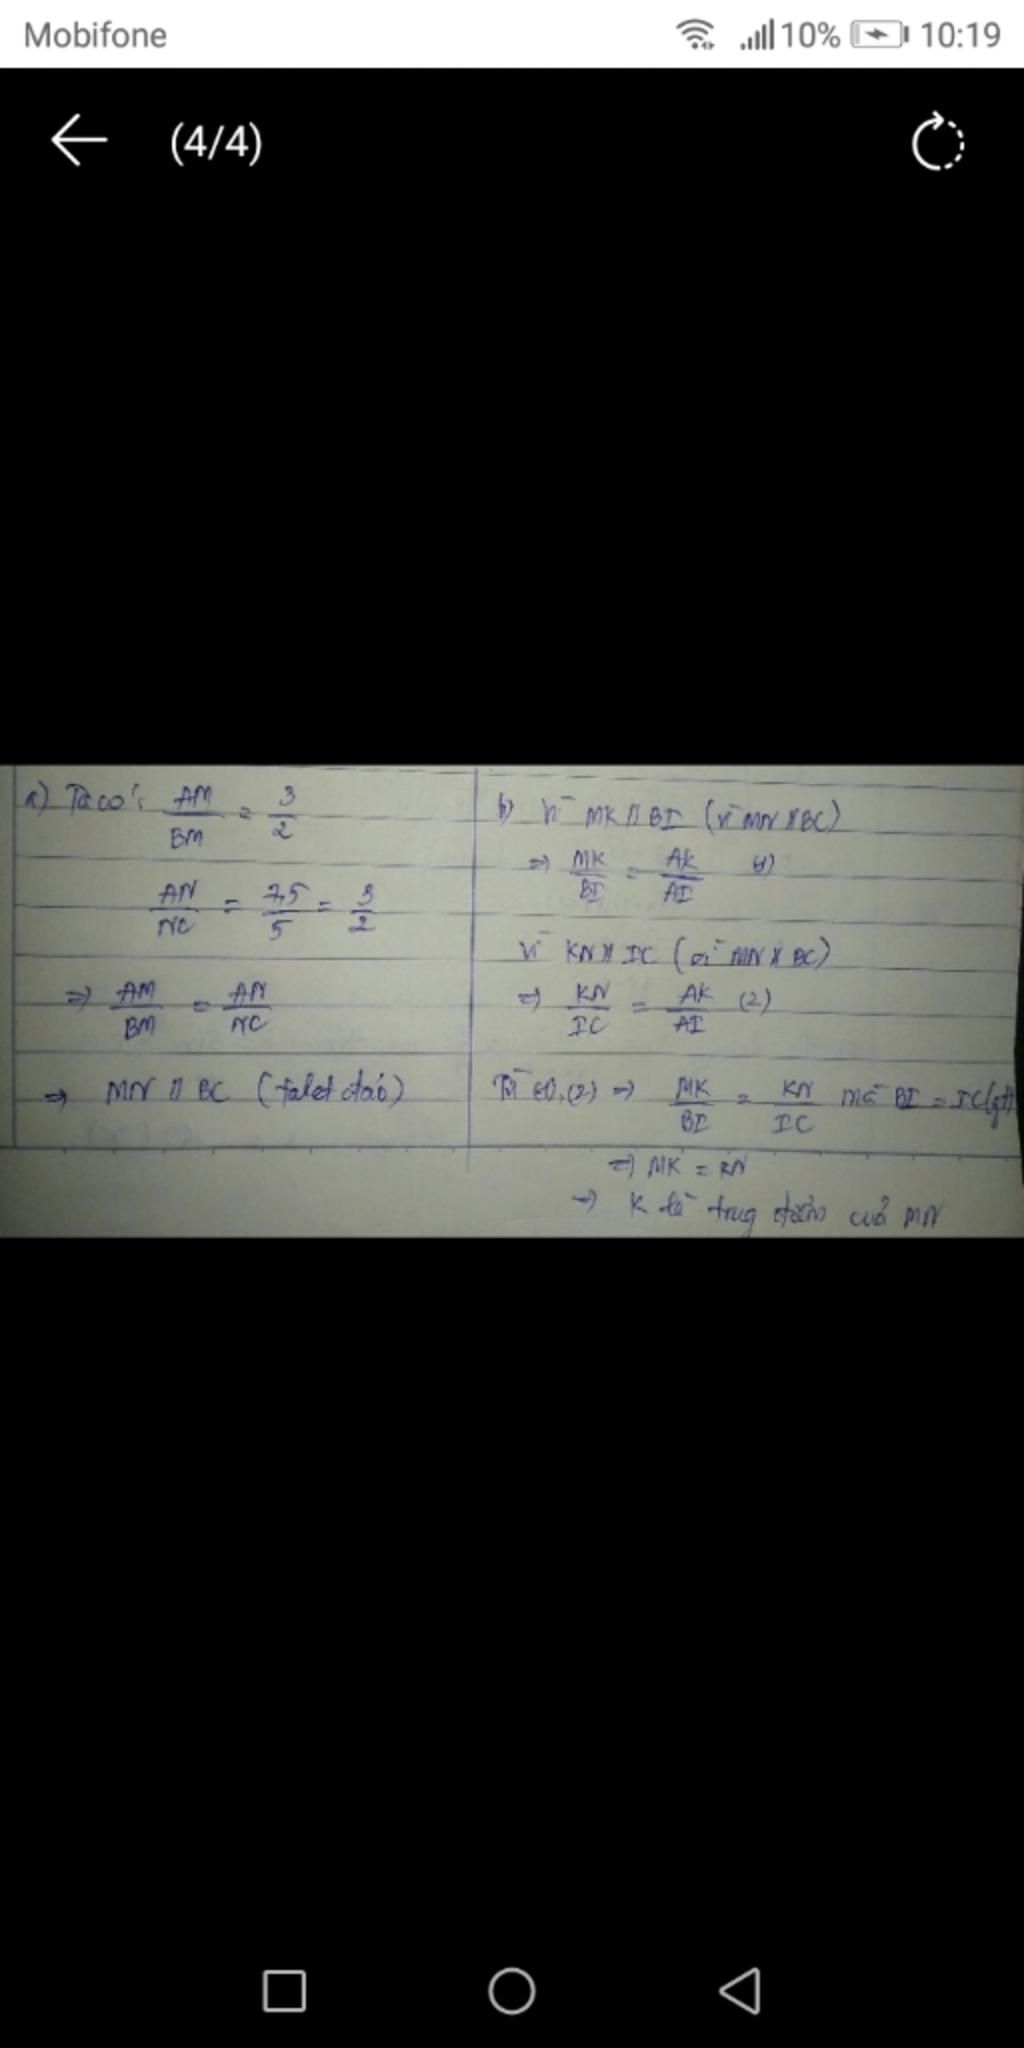 Mobifone
10% 10:19
(4/4)
a) Ta có: AM/BM = 3/2
AN/NC = 7,5/5 = 3/2
=> AM/BM = AN/NC
=> MN // BC (talet đảo)
b) Vì MK // BI (vì MN // BC)
=> MK/BI = AK/AI (1)
Vì KN // IC (vì MN // BC)
=> KN/IC = AK/AI (2)
Từ (1), (2) => MK/BI = KN/IC mà BI = IC (gt)
=> MK = KN
=> K là trug điểm của MN